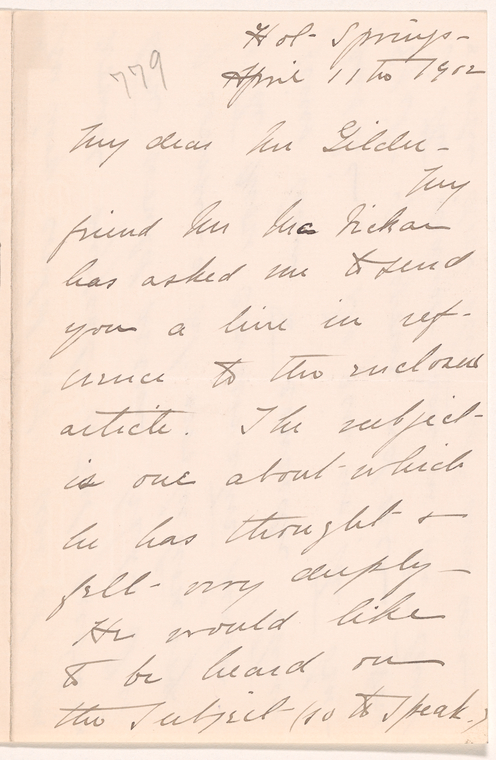 Hot Springs -
April 11th 1902
779
My dear Mr Gilder -
My
friend Mr Mc Vickar
has asked me to send
you a line in ref-
erence to the enclosed
article. The subject
is one about which
he has thought &
felt very deeply -
He would like
to be heard on
the subject (so to speak.)